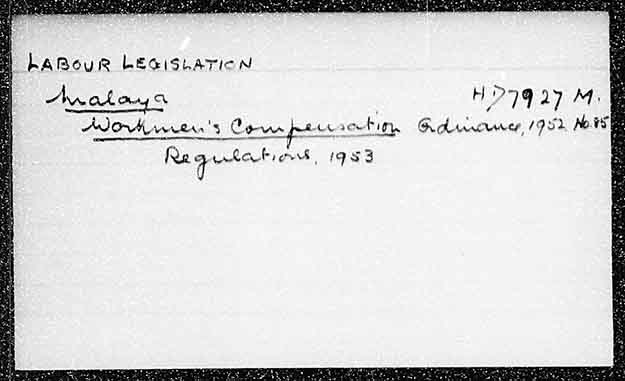 LABOUR LEGISLATION
Malaya HD7927 M.
Workmen's Compensation Ordinance, 1952 No.85
Regulations, 1953